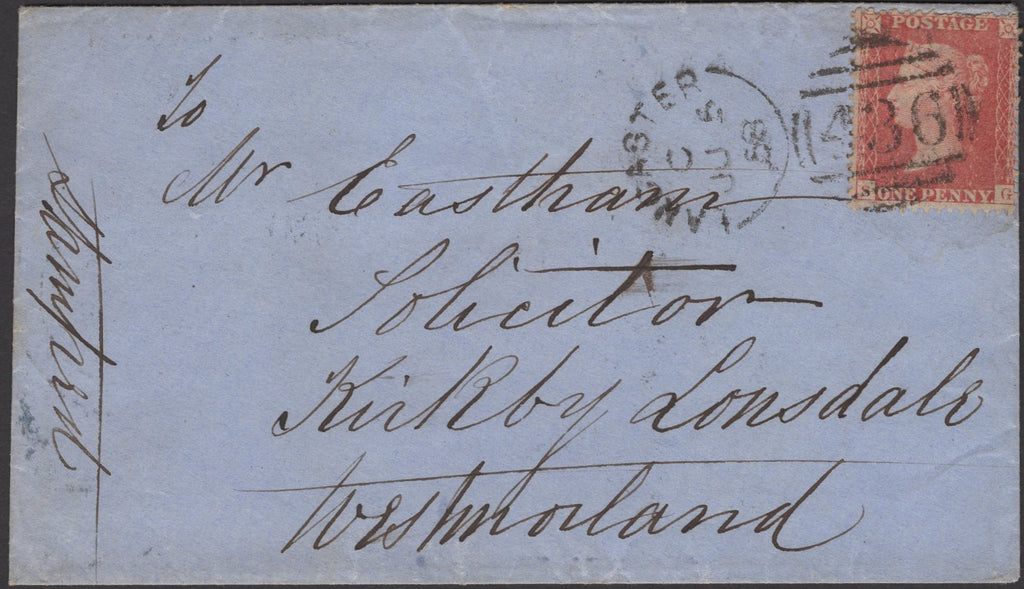 POSTAGE
436
S ONE PENNY G
LANCASTER
C
JU 5
58
To
Mr Eastham
Solicitor
Kirkby Lonsdale
Westmorland
Stamped